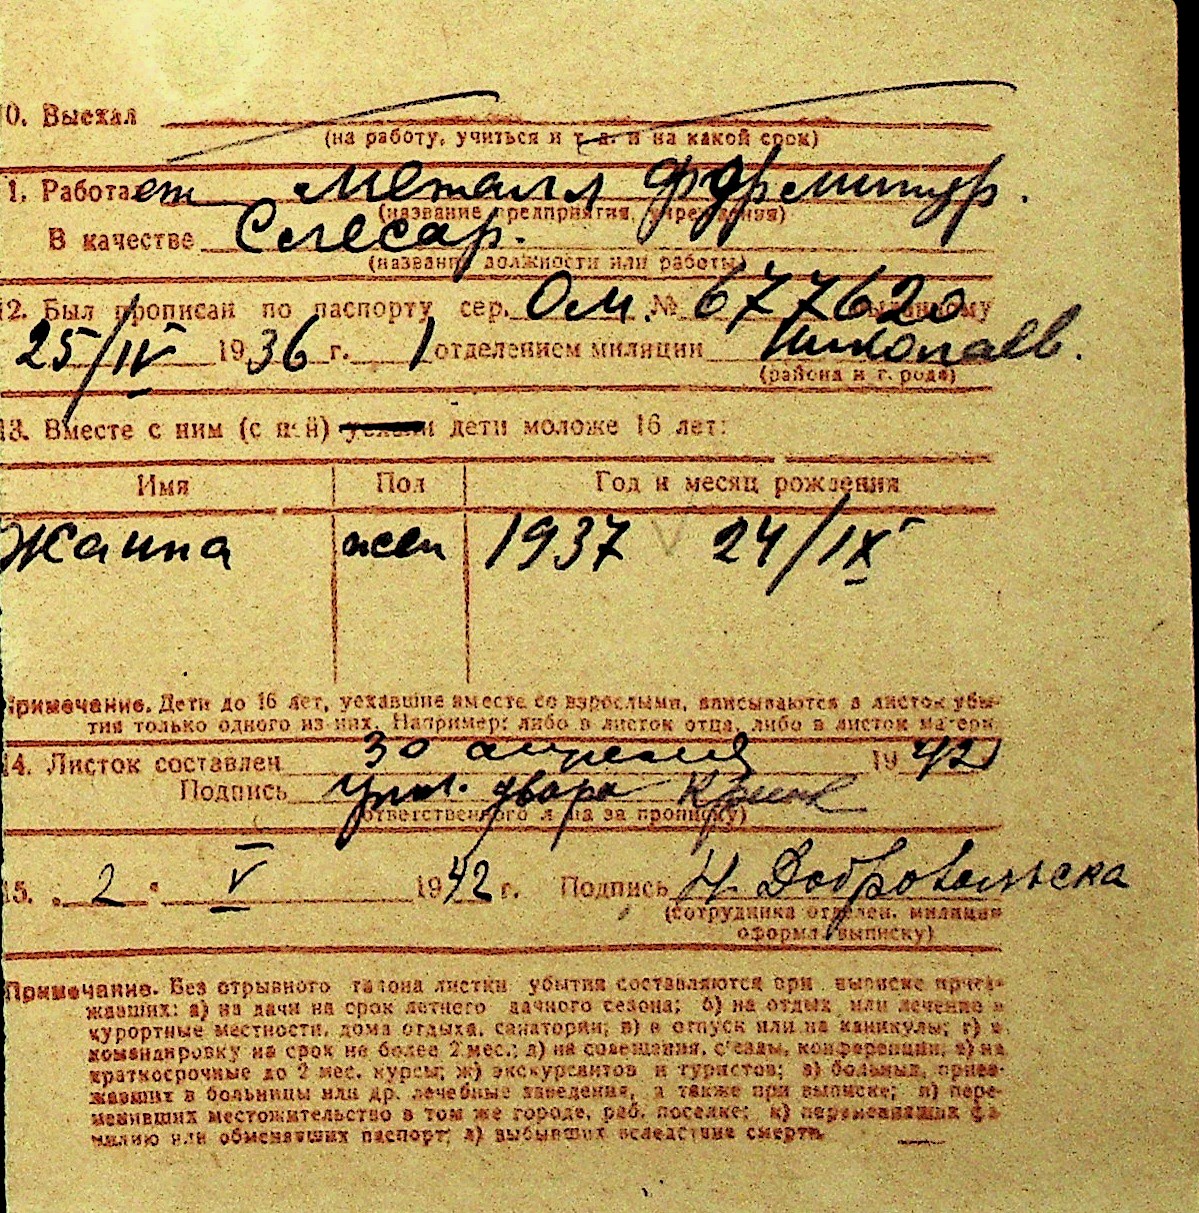 0. Выехал
(на работу, учиться и т. д. и на какой срок)
1. Работает металл фурнитур.
(название предприятия, учреждения)
В качестве Слесар.
(название должности или работы)
12. Был прописан по паспорту сер. Ом. № 677620 выданному
25/IV 1936 г. 1 отделением милиции Николаев.
(района и города)
13. Вместе с ним (с ней) уехали дети моложе 16 лет:
Имя Пол Год и месяц рождения
Жанна жен 1937 V 24/IX
Примечание. Дети до 16 лет, уехавшие вместе со взрослыми, вписываются в листок убы-
тия только одного из них. Например: либо в листок отца, либо в листок матери.
14. Листок составлен 30 апреля 1942
Подпись Упл. двора
(ответственного лица за прописку)
15. „2“ V 1942 г. Подпись Н. Добровольска
(сотрудника отделен. милиции
оформл. выписку)
Примечание. Без отрывного талона листки убытия составляются при выписке приез-
жавших: а) на дачи на срок летнего дачного сезона; б) на отдых или лечение в
курортные местности, дома отдыха, санатории; в) в отпуск или на каникулы; г) в
командировку на срок не более 2 мес.; д) на совещания, с'езды, конференции; е) на
краткосрочные до 2 мес. курсы; ж) экскурсантов и туристов; з) больных, приез-
жавших в больницы или др. лечебные заведения, а также при выписке; и) пере-
менивших местожительство в том же городе, раб. поселке; к) переменивших фа-
милию или обменявших паспорт; л) выбывших вследствие смерти.